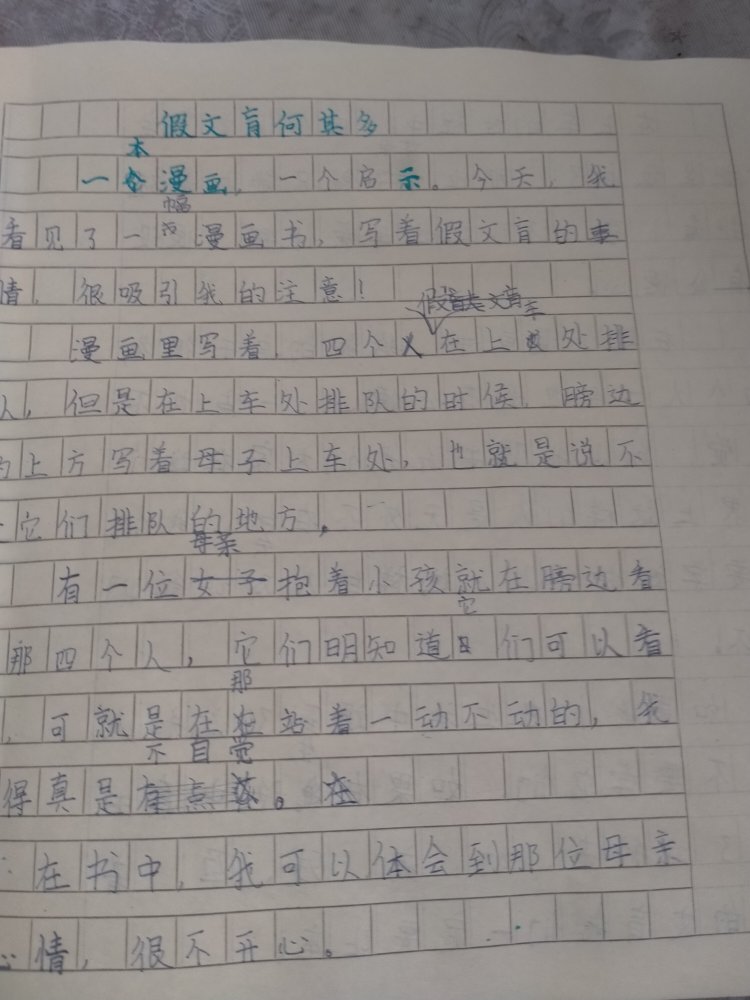 假文盲何其多
一本漫画，一个启示。今天，我
看见了一幅漫画书，写着假文盲的事
情，很吸引我的注意！
漫画里写着，四个假文盲在上车处排
队，但是在上车处排队的时侯，膀边
的上方写着母子上车处，也就是说不
它们排队的地方。
有一位母亲抱着小孩就在膀边看
那四个人，它们明知道它们可以看
，可就是在那站着一动不动的，我
得真是不自觉。
在书中，我可以体会到那位母亲
心情，很不开心。